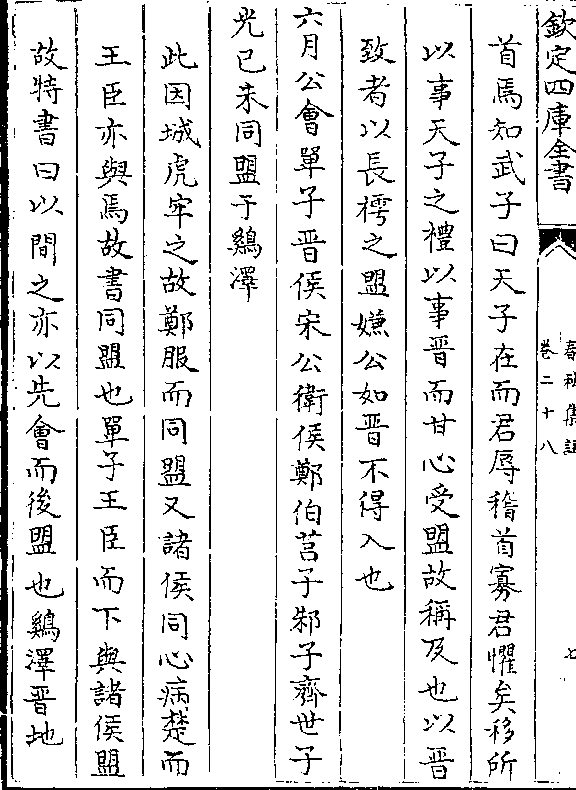 欽定四庫全書
春秋集註
卷二十八
七
首焉知武子曰天子在而君辱稽首寡君懼矣移所
以事天子之禮以事晉而甘心受盟故稱及也以晉
致者以長樗之盟嫌公如晉不得入也
六月公會單子晉侯宋公衛侯鄭伯莒子邾子齊世子
光已未同盟于鷄澤
此因城虎牢之故鄭服而同盟又諸侯同心病楚而
王臣亦與焉故書同盟也單子王臣而下與諸侯盟
故特書曰以間之亦以先會而後盟也鷄澤晉地